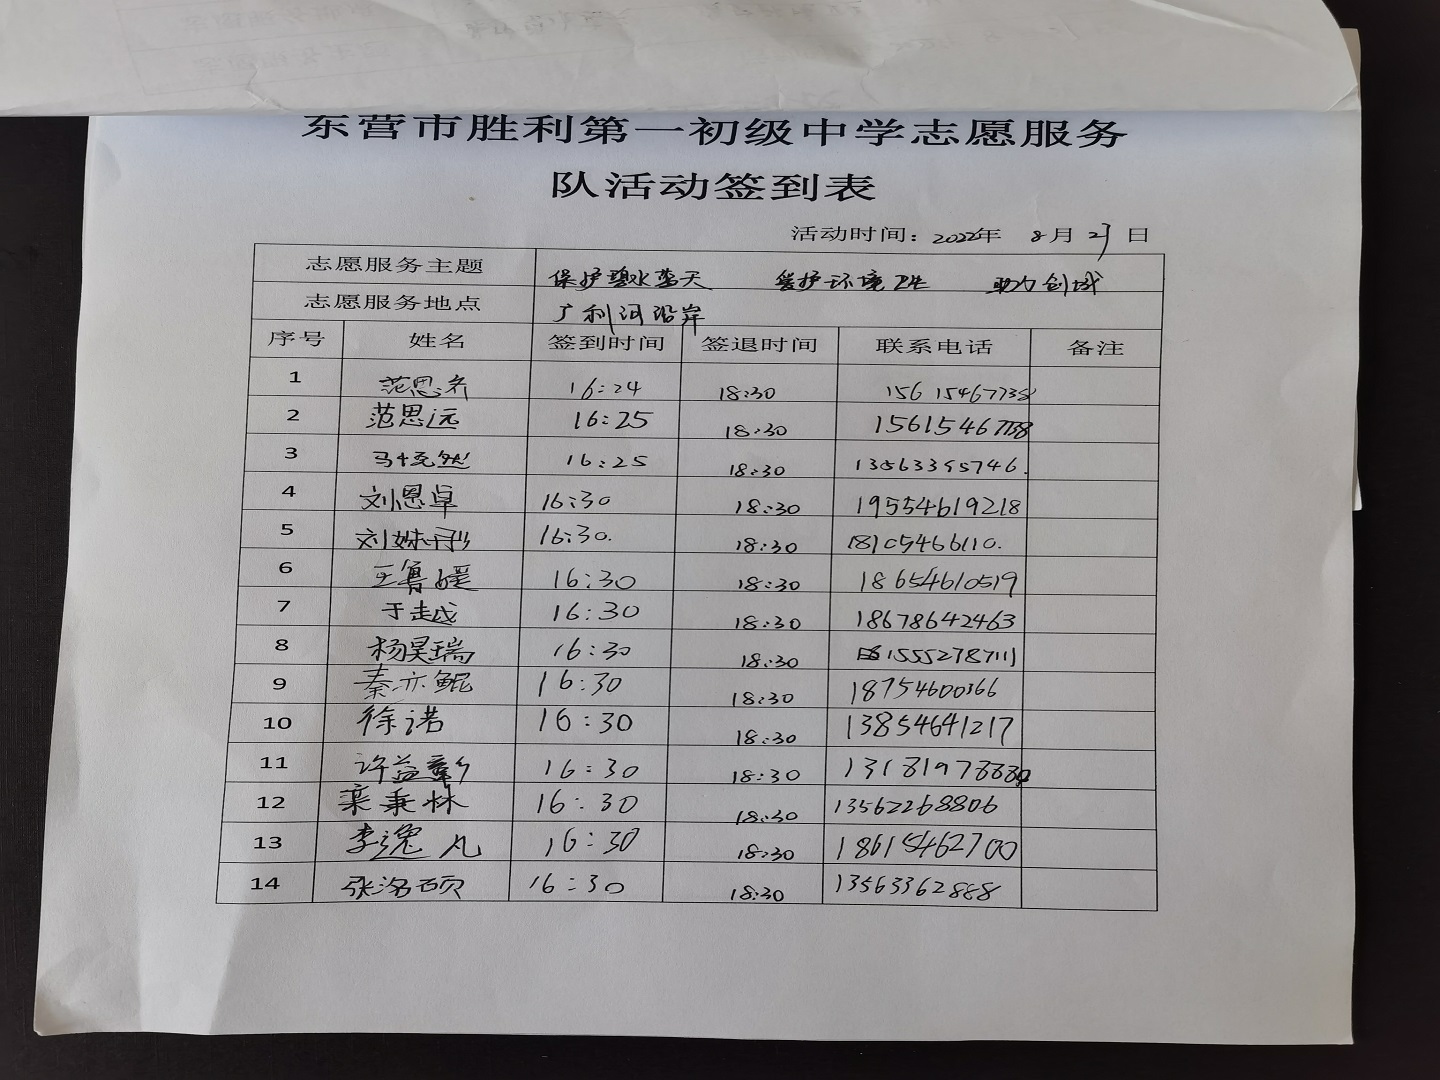 东营市胜利第一初级中学志愿服务
队活动签到表
活动时间：2022年 8月 日
志愿服务主题 保护碧水蓝天 爱护环境卫生 助力创城
志愿服务地点 广利河沿岸
序号 姓名 签到时间 签退时间 联系电话 备注
1 范思齐 16:24 18:30 15615467738
2 范思远 16:25 18:30 15615467738
3 16:25 18:30 13563395746.
4 刘恩卓 16:30 18:30 19554619218
5 16:30. 18:30 18105466110.
6 王鲁媛 16:30 18:30 18654610519
7 于越 16:30 18:30 18678642463
8 杨昊瑞 16:30 18:30 15552787111
9 秦亦鲲 16:30 18:30 18754600366
10 徐诺 16:30 18:30 13854641217
11 许益彰 16:30 18:30
12 栾秉林 16:30 18:30 13562268806
13 李逸凡 16:30 18:30 18615462700
14 张洺硕 16:30 18:30 13563362888